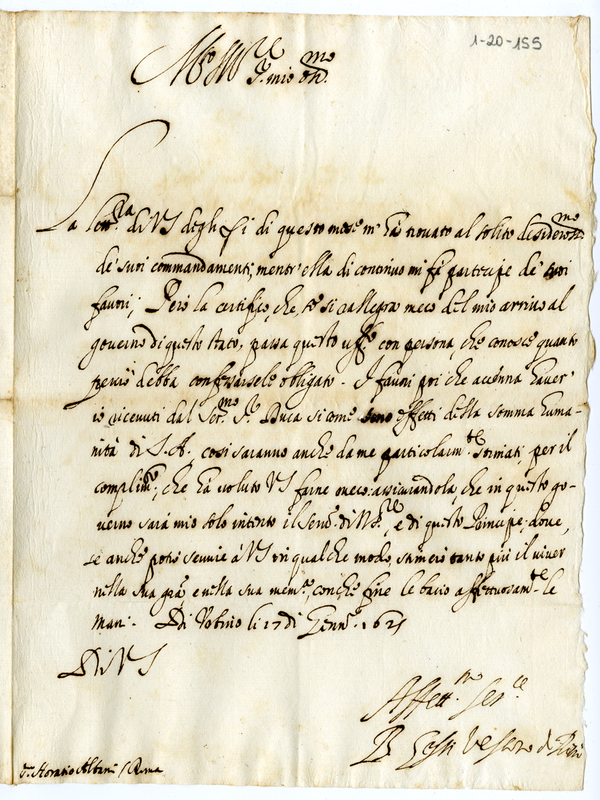 1-20-155
Ill.re S.r mio oss.mo
La lett.ra di VS degli di questo mese m'hà trovato al solito desideros.mo
de' suoi commandamenti, mentr'ella di continuo mi fà partecipe de' suoi
favori; Però la certifico, che, se si rallegra meco del mio arrivo al
governo di questo stato, passa questo uff.o con persona, che conosce quanto
perciò debba confessarsele obligato. I favori poi che accenna haver
io ricevuti dal Ser.mo S.r Duca si come sono effetti della somma huma-
nità di S.A. così saranno anche da me particolarm.te stimati per il
complim.to, che hà voluto VS farne meco: assicurandola, che in questo go-
verno sarà mio solo intento il serv.o di N.S.re, e di questo Principe; dove,
se anche potrò servire à VS in qualche modo, stimerò tanto più il viver
nella sua gra.a e nella sua mem.a, con che fine le bacio affettuosam.te le
mani. Di Urbino li 17 di Genn.o 1625
Di VS
Affett.mo Ser.re
B Gessi Vescovo di
S.r Horatio Albani / Roma